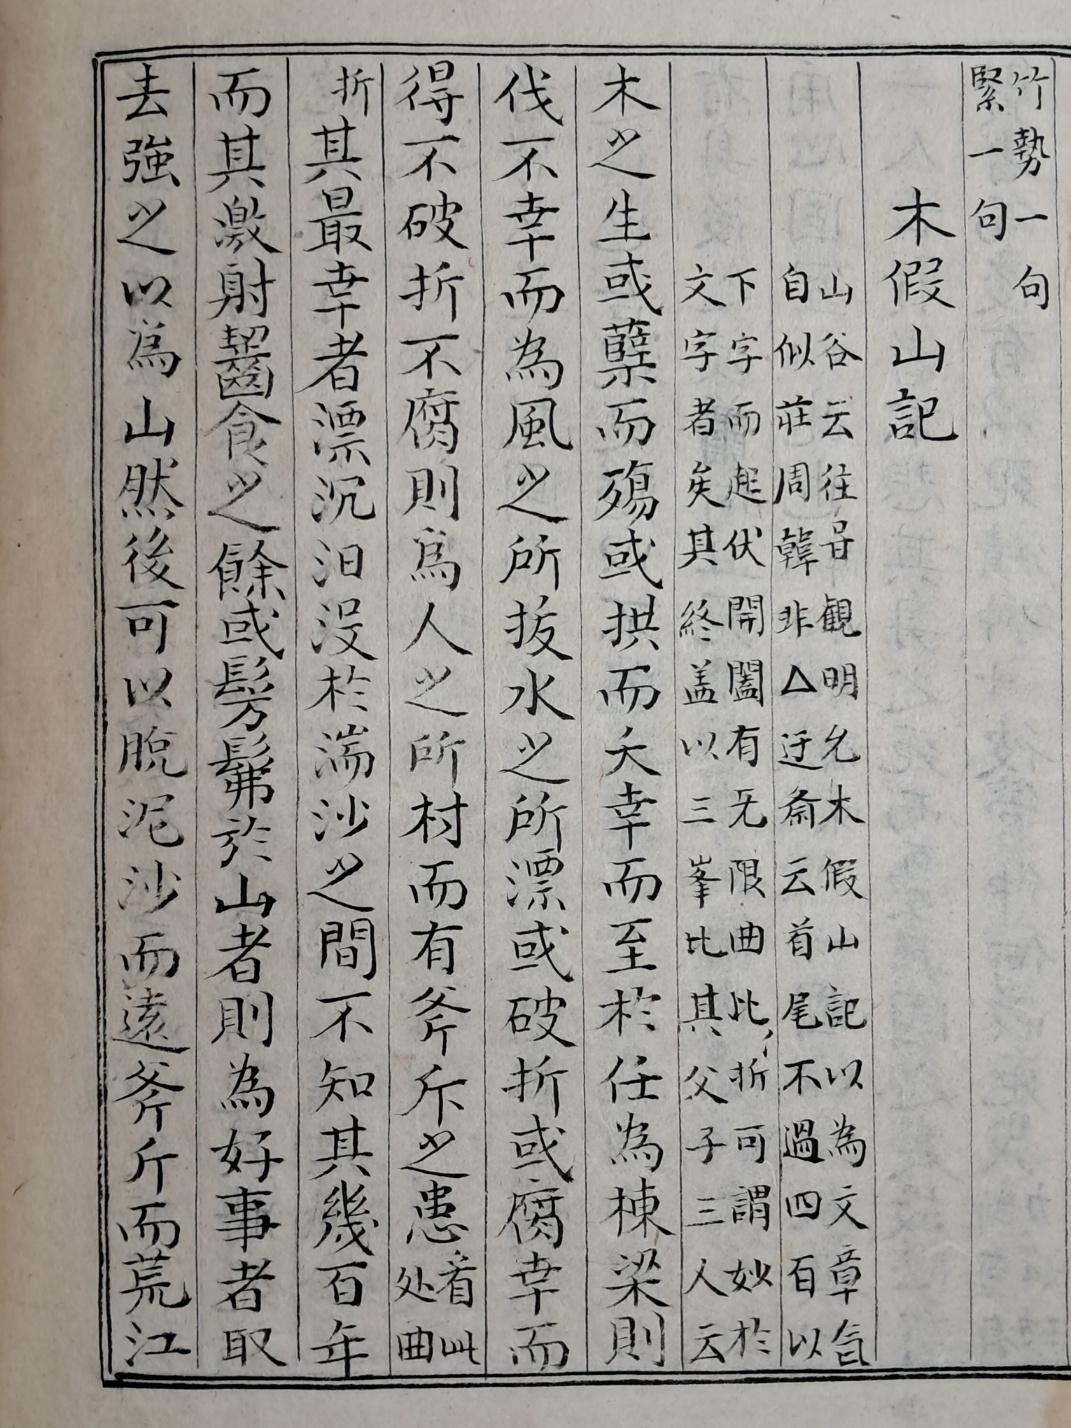 竹勢一句
緊一句
木假山記
山谷云往甞觀明允木假山記以為文章気
自似荘周韓非△迂斎云首尾不過四百以
下字而起伏開闔有无限曲比折可謂妙於
文字者矣其終盖以三峯比其父子三人云
木之生或蘖而殤或拱而夭幸而至於任為棟梁則
伐不幸而為風之所拔水之所漂或破折或腐幸而
得不破折不腐則爲人之所村而有斧斥之患看此処曲
折其最幸者漂沉汨没於湍沙之間不知其幾百年
而其激射齧食之餘或髣髴於山者則為好事者取
去強之以爲山然後可以脫泥沙而遠斧斤而荒江